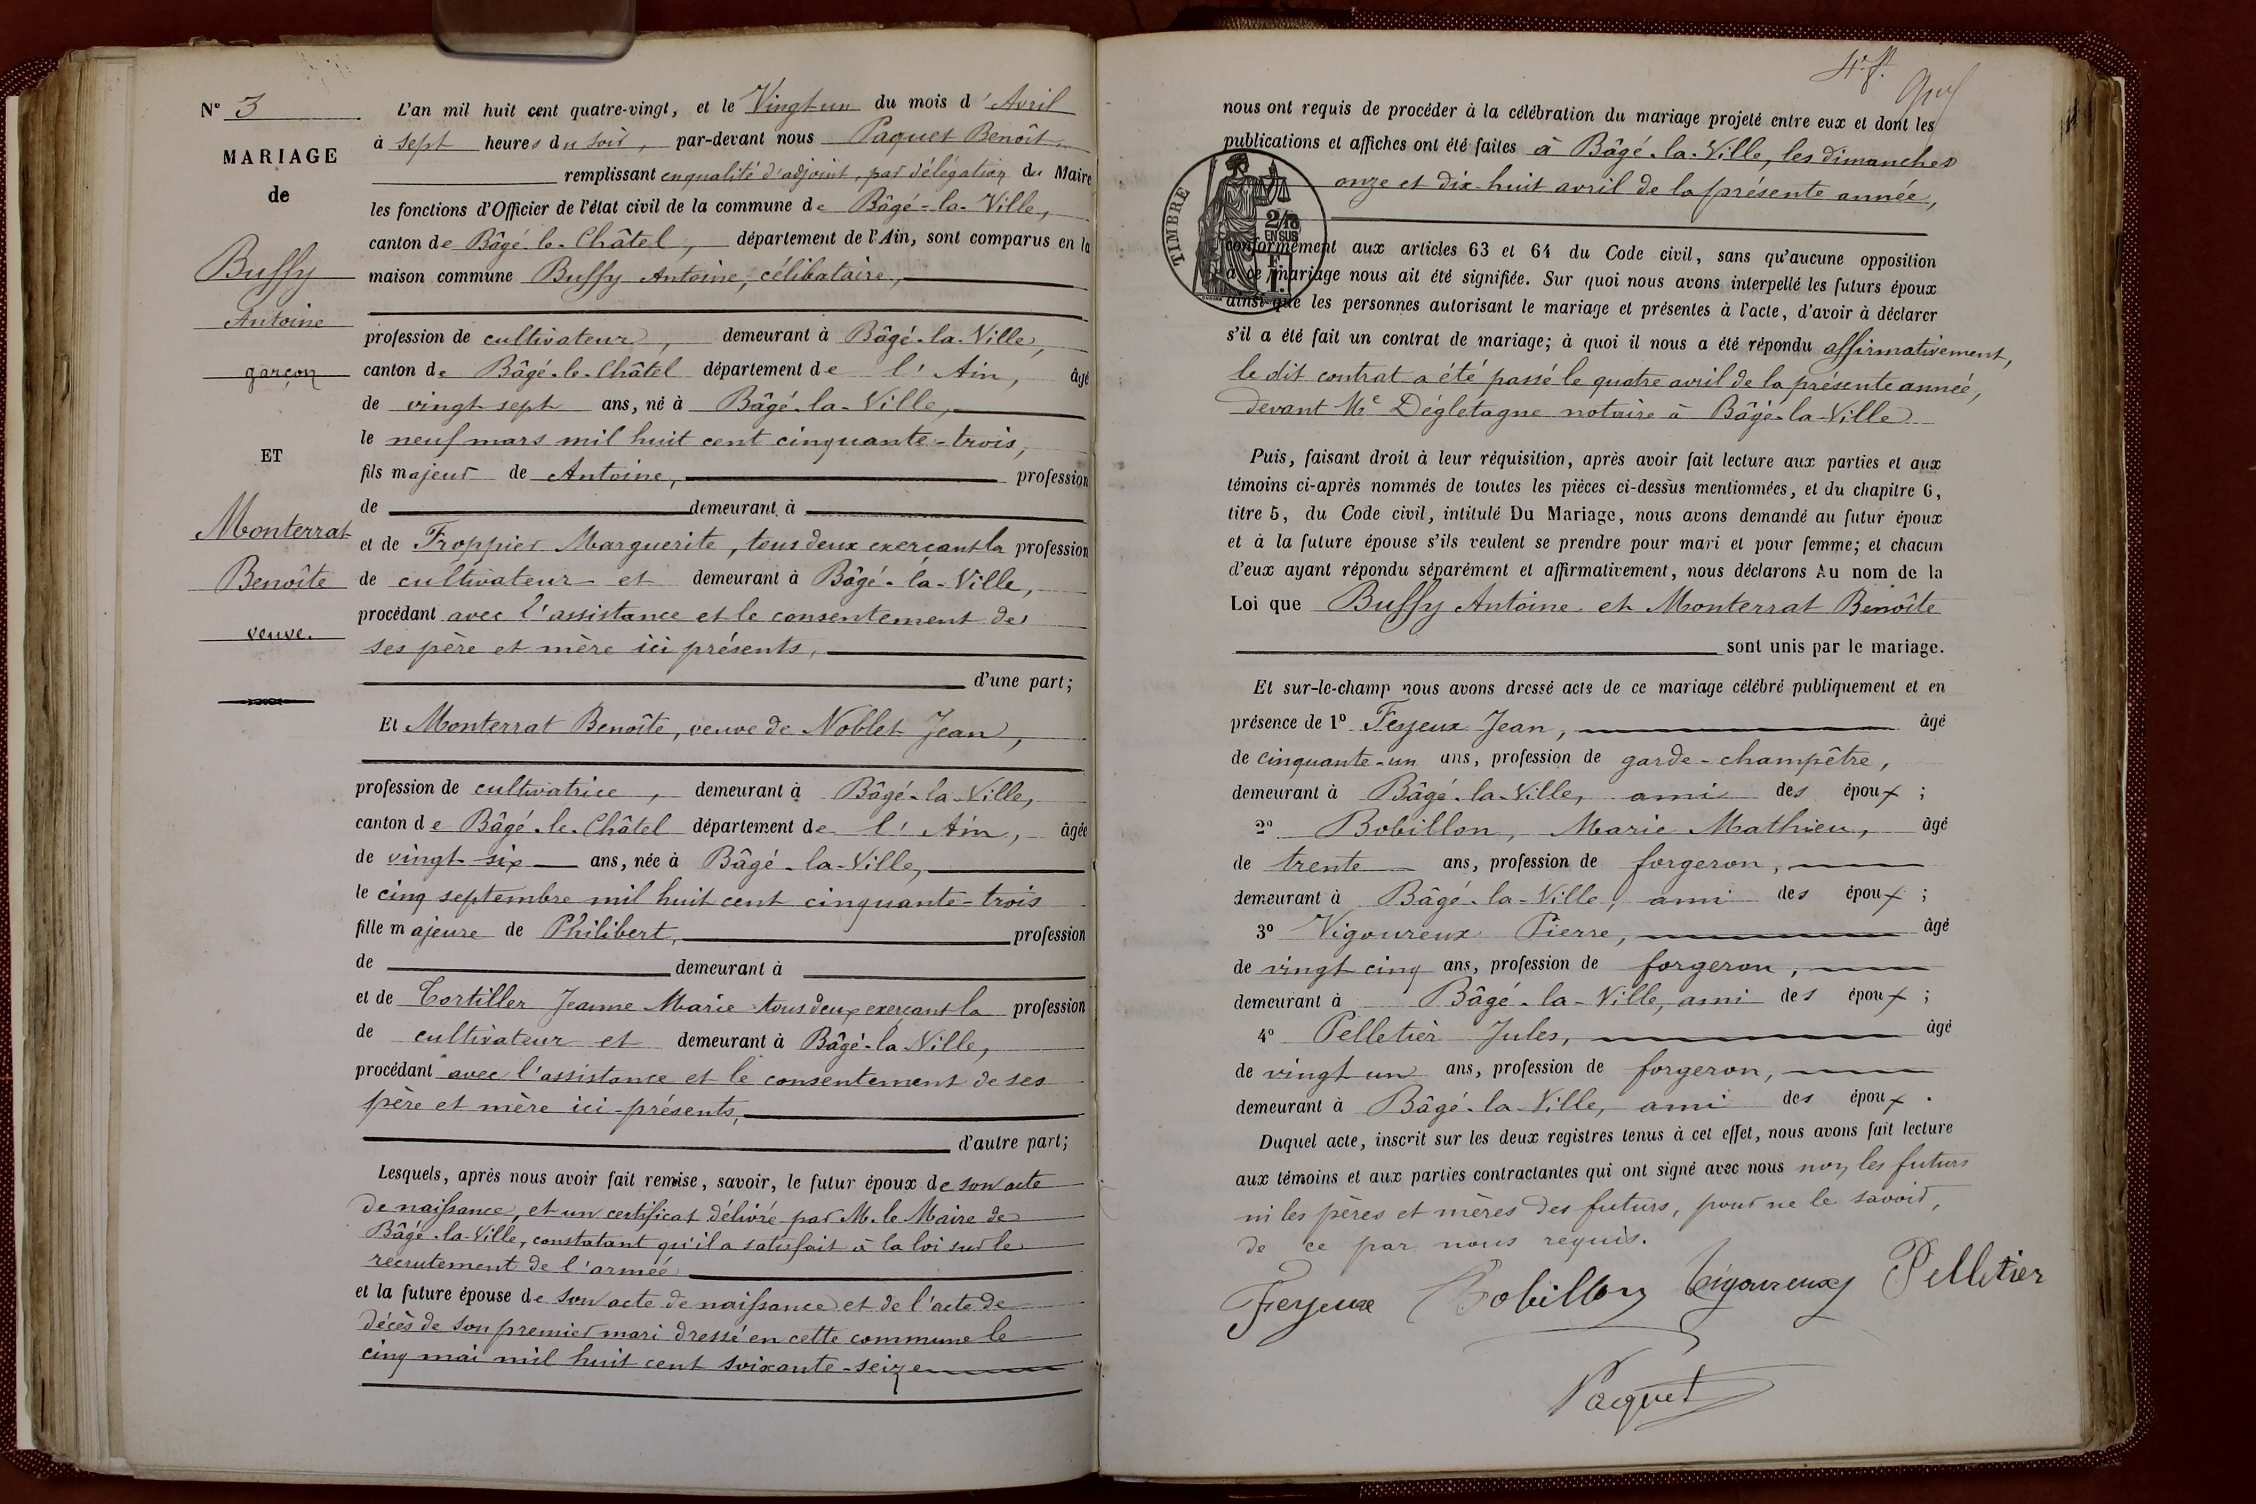 N° 3
MARIAGE
de
Buffy
Antoine
garçon
ET
Monterrat
Benoîte
veuve.
L'an mil huit cent quatre-vingt, et le Vingt un du mois d'Avril
à sept heures du soir, par-devant nous Paquet Benoît
remplissant en qualité d'adjoint, par délégation du Maire
les fonctions d'Officier de l'état civil de la commune de Bâgé-la-Ville,
canton de Bâgé-le-Châtel, département de l'Ain, sont comparus en la
maison commune Buffy Antoine, célibataire,
profession de cultivateur, demeurant à Bâgé-la-Ville,
canton de Bâgé-le-Châtel département de l'Ain, âgé
de vingt sept ans, né à Bâgé-la-Ville,
le neuf mars mil huit cent cinquante-trois,
fils majeur de Antoine, profession
de demeurant à
et de Froppier Marguerite, tous deux exerçant la profession
de cultivateur et demeurant à Bâgé-la-Ville,
procédant avec l'assistance et le consentement de
ses père et mère ici présents,
d'une part;
Et Monterrat Benoîte, veuve de Noblet Jean,
profession de cultivatrice, demeurant à Bâgé-la-Ville,
canton de Bâgé-le-Châtel département de l'Ain, âgée
de vingt-six ans, née à Bâgé-la-Ville,
le cinq septembre mil huit cent cinquante-trois
fille majeure de Philibert, profession
de demeurant à
et de Tortiller Jeanne Marie tous deux exerçant la profession
de cultivateur et demeurant à Bâgé-la-Ville,
procédant avec l'assistance et le consentement de ses
père et mère ici-présents,
d'autre part;
Lesquels, après nous avoir fait remise, savoir, le futur époux de son acte
de naissance, et un certificat délivré par M. le Maire de
Bâgé-la-Ville, constatant qu'il a satisfait à la loi sur le
recrutement de l'armée
et la future épouse de son acte de naissance et de l'acte de
décès de son premier mari dressé en cette commune le
cinq mai mil huit cent soixante-seize
4e f.
nous ont requis de procéder à la célébration du mariage projeté entre eux et dont les
publications et affiches ont été faites à Bâgé-la-Ville, les dimanches
onze et dix-huit avril de la présente année,
TIMBRE
2/10
EN SUS
conformément aux articles 63 et 64 du Code civil, sans qu'aucune opposition
à ce mariage nous ait été signifiée. Sur quoi nous avons interpellé les futurs époux
ainsi que les personnes autorisant le mariage et présentes à l'acte, d'avoir à déclarer
s'il a été fait un contrat de mariage; à quoi il nous a été répondu affirmativement,
le dit contrat a été passé le quatre avril de la présente année,
devant Me Dégletagne notaire à Bâgé-la-Ville
Puis, faisant droit à leur réquisition, après avoir fait lecture aux parties et aux
témoins ci-après nommés de toutes les pièces ci-dessus mentionnées, et du chapitre 6,
titre 5, du Code civil, intitulé Du Mariage, nous avons demandé au futur époux
et à la future épouse s'ils veulent se prendre pour mari et pour femme; et chacun
d'eux ayant répondu séparément et affirmativement, nous déclarons Au nom de la
Loi que Buffy Antoine et Monterrat Benoîte
sont unis par le mariage.
Et sur-le-champ nous avons dressé acte de ce mariage célébré publiquement et en
présence de 1° Feyeux Jean, âgé
de cinquante-un ans, profession de garde-champêtre,
demeurant à Bâgé-la-Ville, ami des époux;
2° Bobillon, Marie Mathieu, âgé
de trente ans, profession de forgeron,
demeurant à Bâgé-la-Ville, ami des époux;
3° Vigoureux Pierre, âgé
de vingt cinq ans, profession de forgeron,
demeurant à Bâgé-la-Ville, ami des époux;
4° Pelletier Jules, âgé
de vingt un ans, profession de forgeron,
demeurant à Bâgé-la-Ville, ami des époux.
Duquel acte, inscrit sur les deux registres tenus à cet effet, nous avons fait lecture
aux témoins et aux parties contractantes qui ont signé avec nous non les futurs
ni les pères et mères des futurs, pour ne le savoir,
de ce par nous requis.
Feyeux Bobillon Vigoureux Pelletier
Paquet